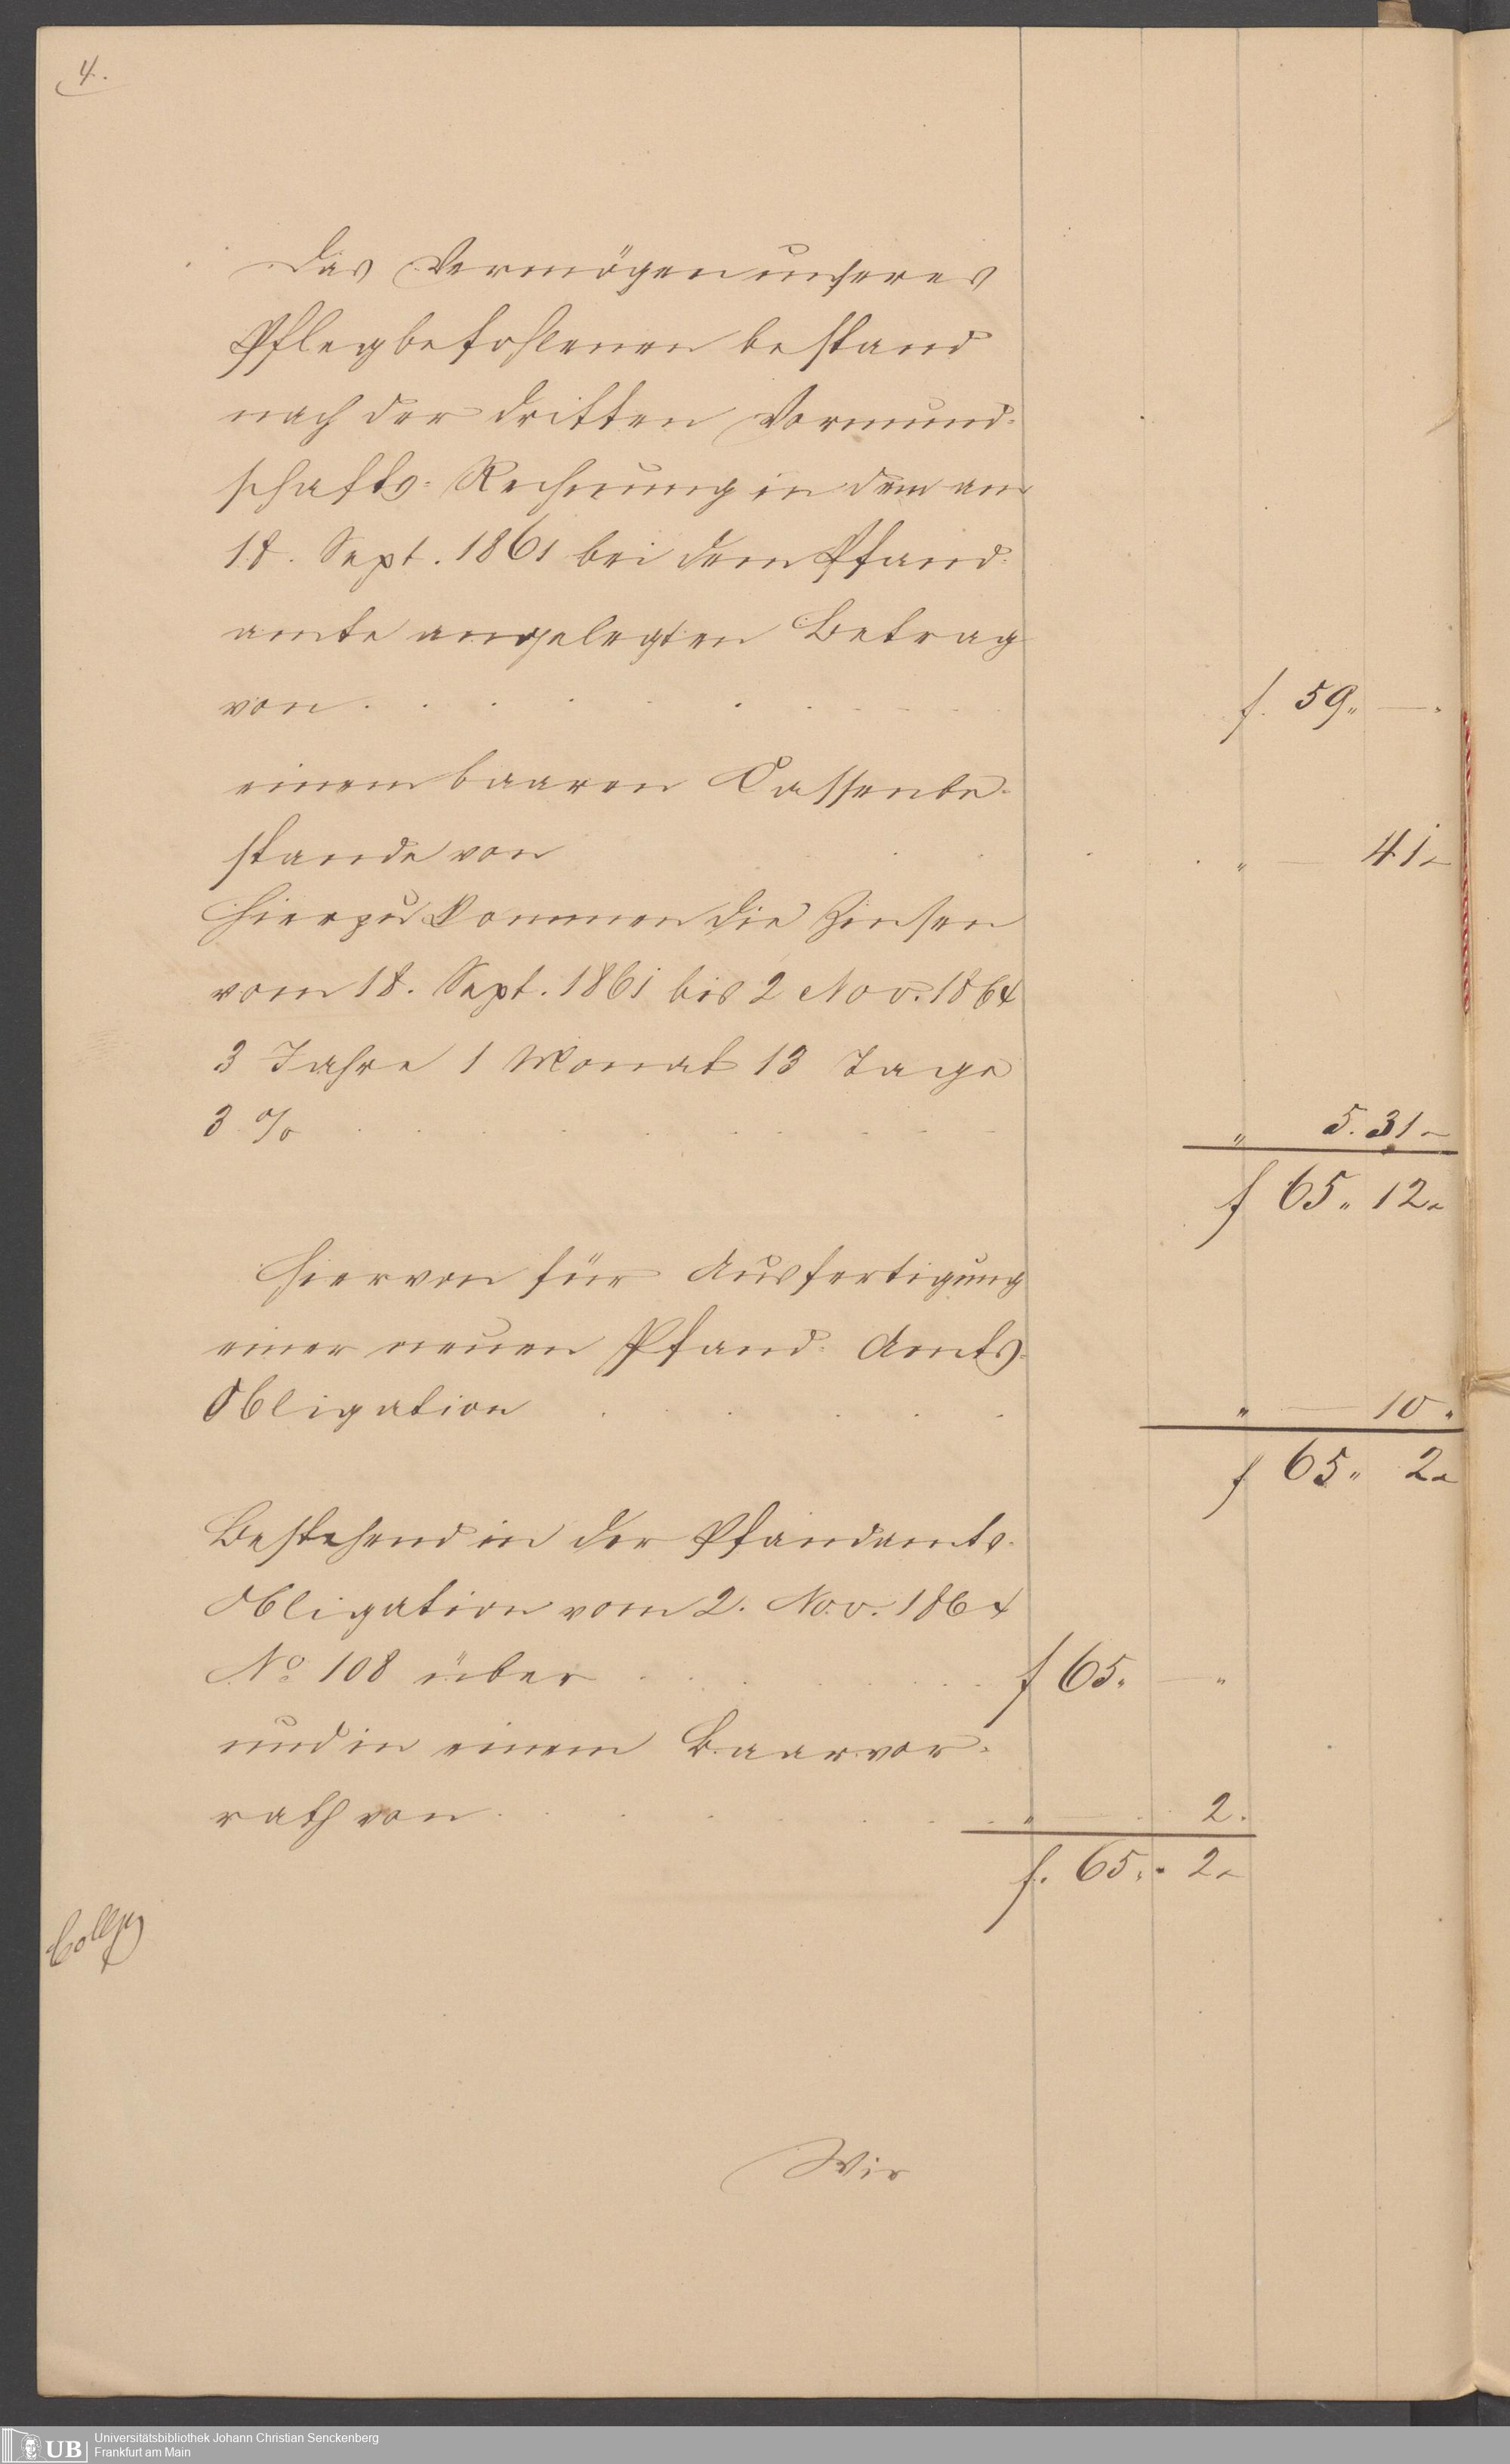 4.
Das Vermögen unseres
Pflegbefohlenen bestand
nach der dritten Vormund-
schafts-Rechnung in dem am
18. Sept. 1861 bei dem Pfand-
amte angelegten Betrag
von . . . . . . . . f. 59. —.
einem baaren Cassenbe-
stande von . . . . " — 41.
Hierzu kommen die Zinsen
vom 18. Sept. 1861 bis 2 Nov. 1864
3 Jahre 1 Monat 13 Tage
3 % . . . . . . . . " 5. 31.
f 65. 12.
Hiervon für Ausfertigung
einer neuen Pfand-Amts-
Obligation . . . . . " — 10.
f 65. 2.
Bestehend in der Pfandamts-
Obligation vom 2. Nov. 1864
No 108 über . . . . . f 65. — "
und in einem Baarvor-
rath von . . . . . " — 2.
f. 65. 2.
Wir
UB Universitätsbibliothek Johann Christian Senckenberg
Frankfurt am Main